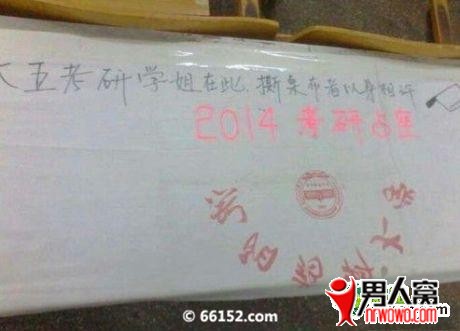 大五考研学姐在此,撕桌布者以身相许
2014 考研占座
大学
66152.com
男人窝
nrwowo.com